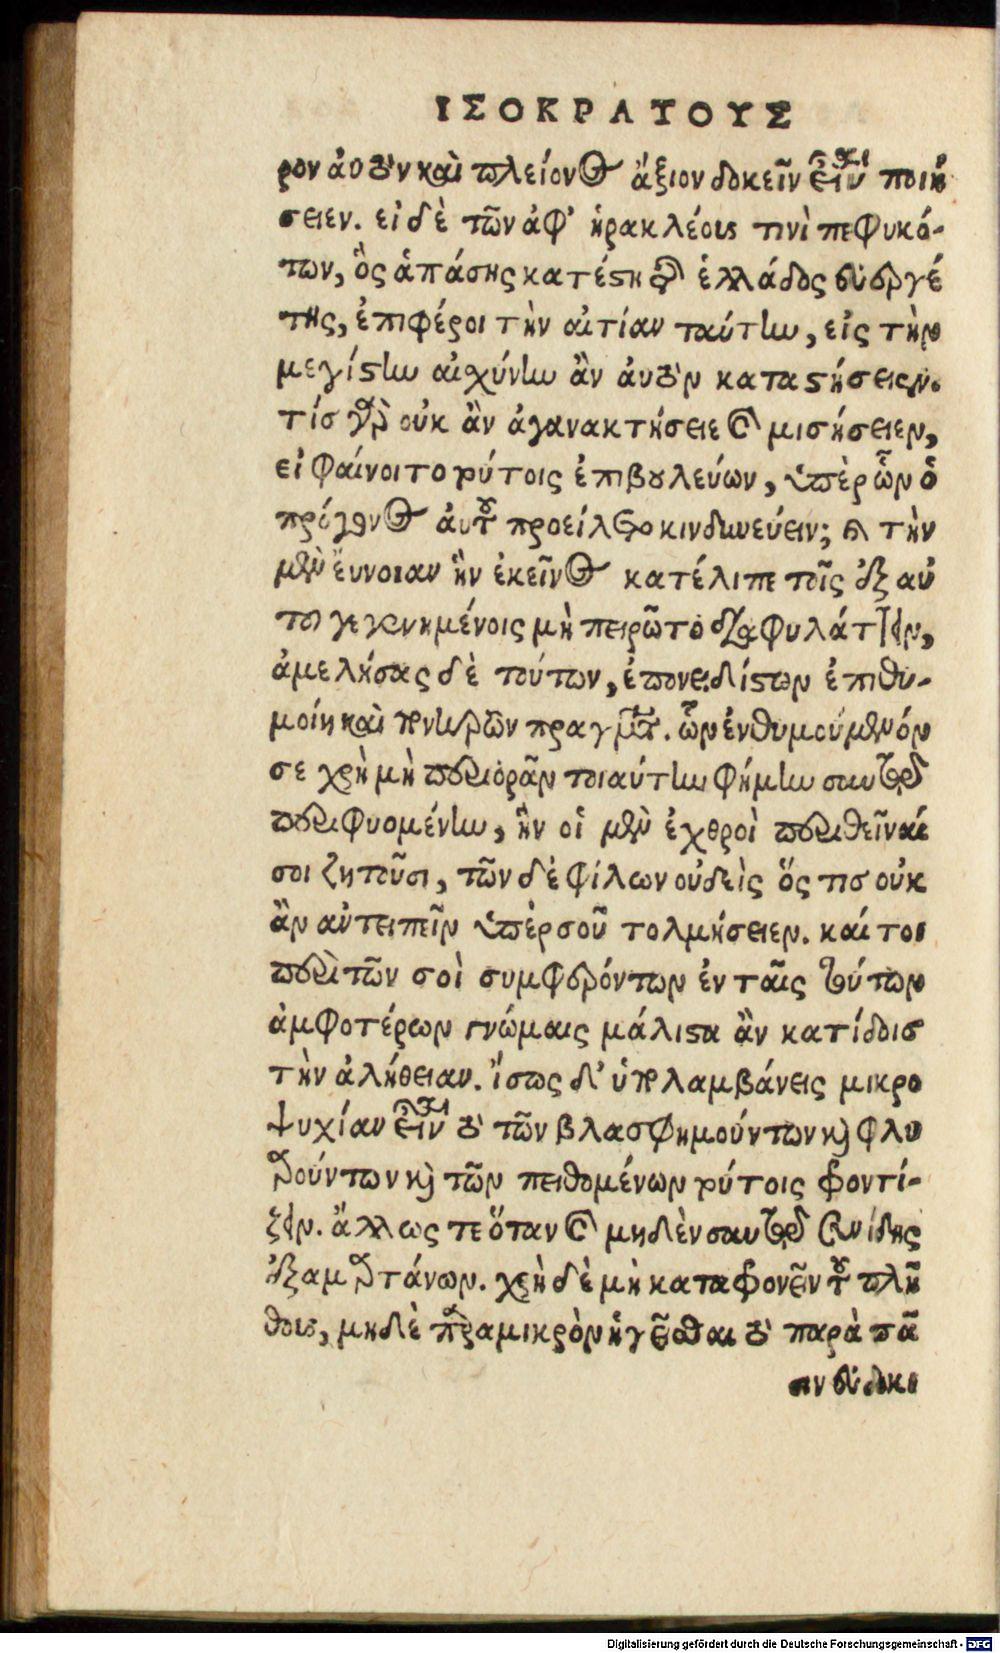 ΙΣΟΚΡΑΤΟΥΣ
ρον αὐτὸν καὶ πλείονος ἄξιον δοκεῖν εἶναι ποιή
σειεν. εἰ δὲ τῶν ἀφ' ἡρακλέους τινὶ πεφυκό-
των, ὃς ἁπάσης κατέστη τῆς ἑλλάδος εὐεργέ
της, ἐπιφέροι τὴν αἰτίαν ταύτην, εἰς τὴν
μεγίστην αἰσχύνην ἂν αὐτὸν καταστήσειεν.
τίς γὰρ οὐκ ἂν ἀγανακτήσειε καὶ μισήσειεν,
εἰ φαίνοιτο τούτοις ἐπιβουλεύων, ὑπὲρ ὧν ὁ
πρόγονος αὐτοῦ προείλετο κινδυνεύειν; καὶ τὴν
μὲν εὔνοιαν ἣν ἐκεῖνος κατέλιπε τοῖς ἐξ αὐ
τοῦ γεγενημένοις μὴ πειρῷτο διαφυλάττειν,
ἀμελήσας δὲ τούτων, ἐπονειδίστων ἐπιθυ-
μοίη καὶ πονηρῶν πραγμάτων. ὧν ἐνθυμούμενόν
σε χρὴ μὴ περιορᾶν τοιαύτην φήμην σαυτῷ
περιφυομένην, ἣν οἱ μὲν ἐχθροὶ περιθεῖναί
σοι ζητοῦσι, τῶν δὲ φίλων οὐδεὶς ὅς τις οὐκ
ἂν ἀντειπεῖν ὑπὲρ σοῦ τολμήσειεν. καί τοι
περὶ τῶν σοὶ συμφερόντων ἐν ταῖς τούτων
ἀμφοτέρων γνώμαις μάλιστα ἂν κατίδοις
τὴν ἀλήθειαν. ἴσως δ' ὑπολαμβάνεις μικρο
ψυχίαν εἶναι τὸ τῶν βλασφημούντων καὶ φλυ
αρούντων καὶ τῶν πειθομένων τούτοις φροντί-
ζειν. ἄλλως τε ὅταν καὶ μηδὲν σαυτῷ συνίδῃς
ἐξαμαρτάνων. χρὴ δὲ μὴ καταφρονεῖν τοῦ πλή
θους, μηδὲ παρὰ μικρὸν ἡγεῖσθαι τὸ παρὰ πᾶ
σιν εὐδοκι
Digitalisierung gefördert durch die Deutsche Forschungsgemeinschaft - DFG